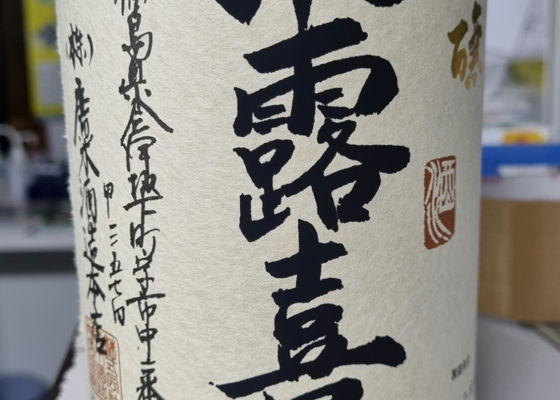 醸
酒
露喜
島県会津坂下町字市中二番
甲三五七四
(株)廣木酒造本店